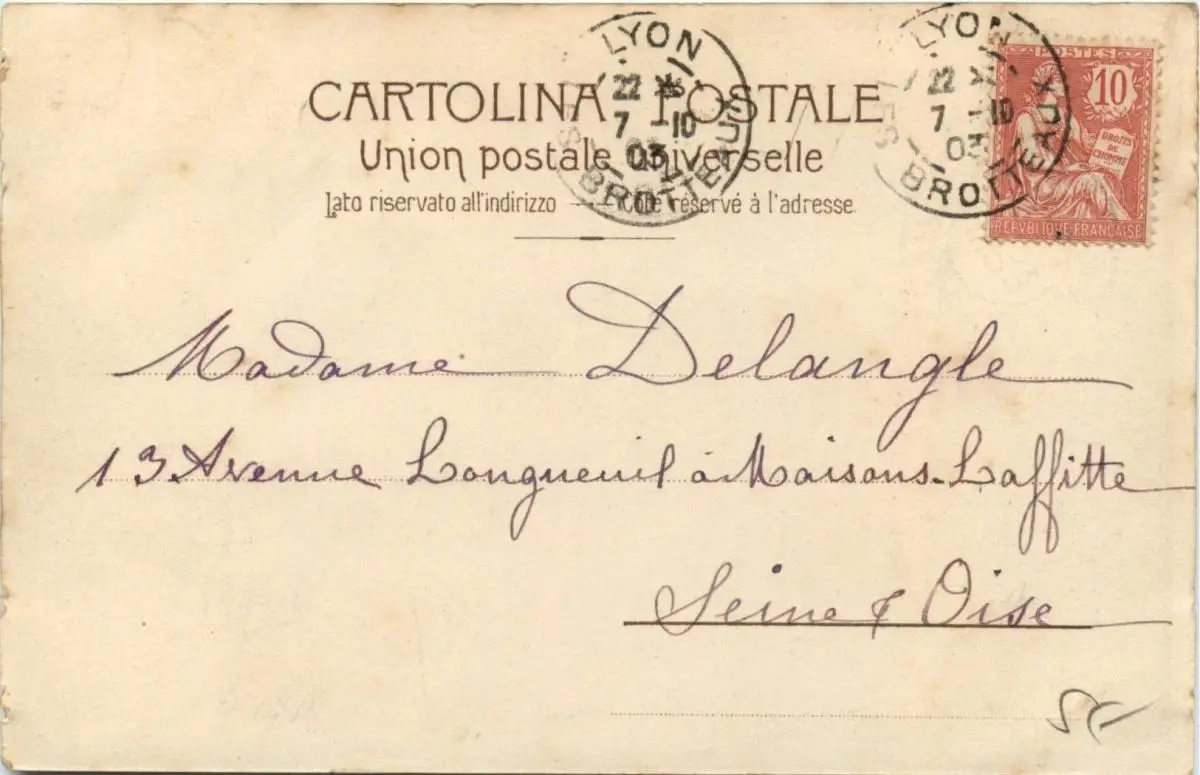 CARTOLINA POSTALE
Union postale universelle
Lato riservato all'indirizzo — Côté réservé à l'adresse
LYON
22
7 -10
03
LES BROTTEAUX
LYON
22
7 -10
03
LES BROTTEAUX
POSTES
10
DROITS
DE
L'HOMME
REPVBLIQVE FRANÇAISE
Madame Delangle
13 Avenue Longueuil à Maisons-Laffitte
Seine & Oise